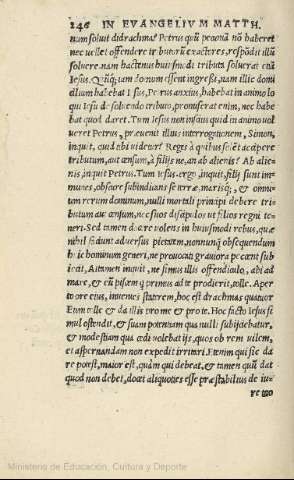 246 IN EVANGELIVM MATTH.
num soluit didrachma? Petrus quũ pecuniã nõ haberet
nec vellet offendere tributorũ exactores, respõdit illũ
soluere. nam hactenus huiusmodi tributa soluerat etiã
Iesus. Vtq; iam domum essent ingressi, nam illic domi
cilium habebat Iesus, Petrus anxius, habebat in animo lo
qui Iesu de soluendo tributo, promiserat enim, nec habe
bat quod daret. Tum Iesus non inscius quid in animo vol
ueret Petrus, præuenit illius interrogationem, Simon,
inquit, quid tibi videtur? Reges à quibus solẽt accipere
tributum, aut censum, à filijs ne, an ab alienis? Ab alie
nis inquit Petrus. Tum Iesus. ergo inquit, filij sunt im-
munes, obscure subindicans se terræ, marisq;, & omniu
um rerum dominum, nulli mortali principi debere tri
butum aut censum, nec suos discipulos ut filios regni te
neri. Sed tamen docere volens in huiusmodi rebus, quæ
nihil faciunt aduersus pietatem, nonnunq̃ obsequendum
hoc hominum generi, ne prouocati grauiora peccent subi
cit, Attamen inquit, ne simus illis offendiculo, abi ad
mare, & cũ piscem q̃ primus ad te prodierit, tolle. Aper
to ore eius, inuenies staterem, hoc est drachmas quatuor
Eum tolle & da illis pro me & pro te. Hoc facto Iesus si
mul ostendit, & suam potentiam qua nulli subijciebatur,
& modestiam qua cædi volebat ijs, quos ob rem uilem,
et aspernandam non expedit irritari. Etenim qui sic da
re potest, maior est, quàm qui debeat, & tamen quũ dat
quod non debet, docet aliquoties esse præstabilius de iu-
re suo
Ministerio de Educación, Cultura y Deporte